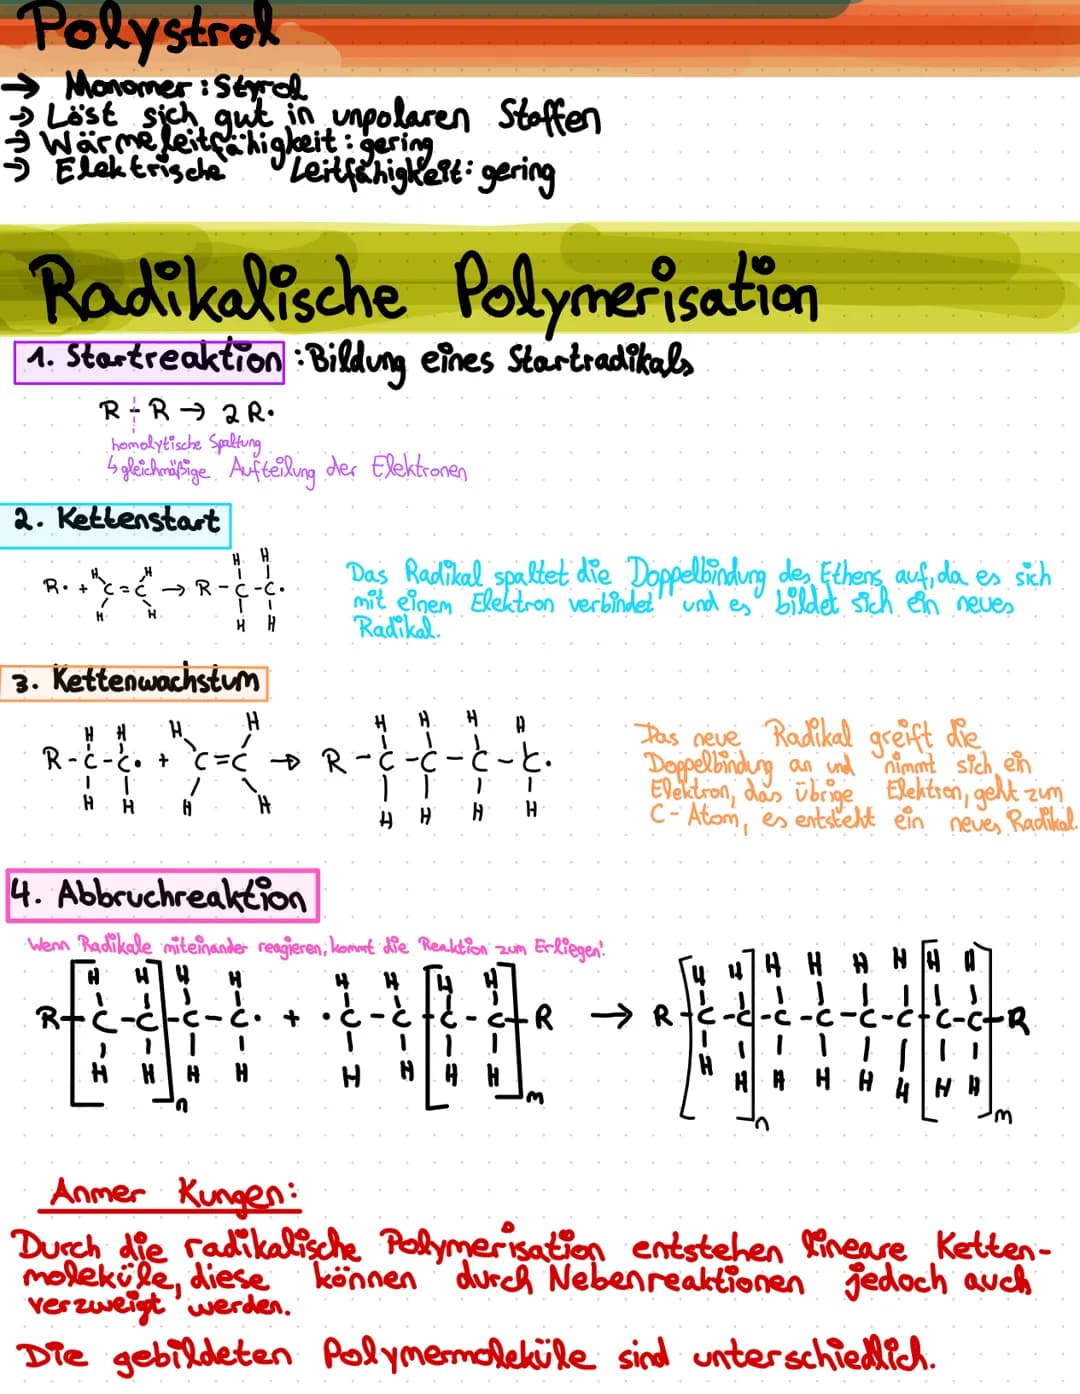 Polystrol
→ Monomer : Styrol
→ Löst sich gut in unpolaren Stoffen
→ Wärmeleitfähigkeit : gering
→ Elektrische Leitfähigkeit: gering
Radikalische Polymerisation
1. Startreaktion : Bildung eines Startradikals
R - R → 2 R•
homolytische Spaltung
↳ gleichmäßige Aufteilung der Elektronen
2. Kettenstart
H H
H H
R• + C = C → R - C - C•
H H
H H
Das Radikal spaltet die Doppelbindung des Ethens auf, da es sich
mit einem Elektron verbindet und es bildet sich ein neues
Radikal.
3. Kettenwachstum
H H H H H H H H
R - C - C• + C = C → R - C - C - C - C•
H H H H H H H H
Das neue Radikal greift die
Doppelbindung an und nimmt sich ein
Elektron, das übrige Elektron, geht zum
C - Atom, es entsteht ein neues Radikal.
4. Abbruchreaktion
Wenn Radikale miteinander reagieren, kommt die Reaktion zum Erliegen!
H H H H H H H H H H H H H H H H
R [ C - C ] - C - C• + •C - C [ C - C ] R → R [ C - C ] - C - C - C - C [ C - C ] R
H H H H H H H H H H H H H H H H
n m n m
Anmer Kungen:
Durch die radikalische Polymerisation entstehen lineare Ketten-
moleküle, diese können durch Nebenreaktionen jedoch auch
verzweigt werden.
Die gebildeten Polymermoleküle sind unterschiedlich.